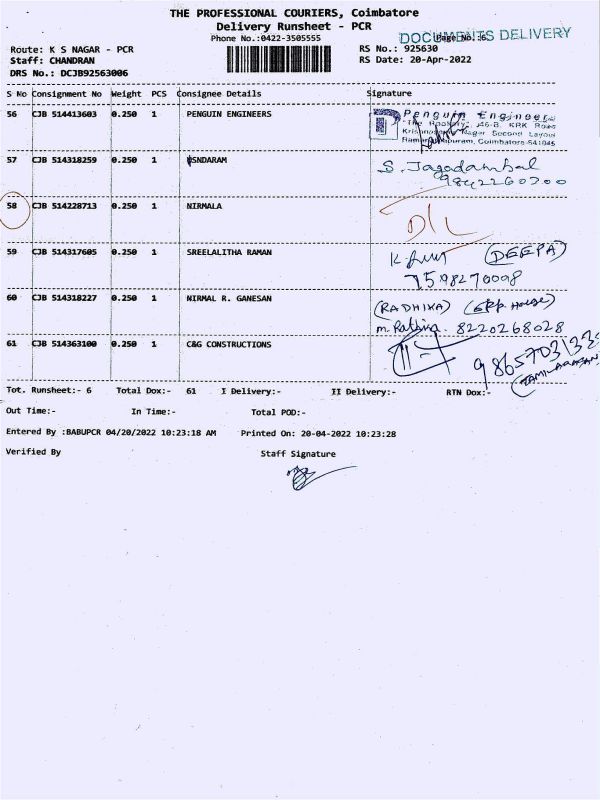 THE PROFESSIONAL COURIERS, Coimbatore
Delivery Runsheet - PCR
DOCUMENTS DELIVERY
Phone No.:0422-3505555 Page No.:6
Route: K S NAGAR - PCR RS No.: 925630
Staff: CHANDRAN RS Date: 20-Apr-2022
DRS No.: DCJB92563006
S No Consignment No Weight PCS Consignee Details Signature
56 CJB 514413603 0.250 1 PENGUIN ENGINEERS
Penguin Engineers
57 CJB 514318259 0.250 1 VSNDARAM
S. Jagadambal
9842260700
58 CJB 514228713 0.250 1 NIRMALA D/L
59 CJB 514317605 0.250 1 SREELALITHA RAMAN
(DEEPA)
7598270098
60 CJB 514318227 0.250 1 NIRMAL R. GANESAN
(RADHIKA) (Opp. House)
8220268028
61 CJB 514363100 0.250 1 C&G CONSTRUCTIONS
Tot. Runsheet:- 6 Total Dox:- 61 I Delivery:- II Delivery:- RTN Dox:-
Out Time:- In Time:- Total POD:-
Entered By :BABUPCR 04/20/2022 10:23:18 AM Printed On: 20-04-2022 10:23:28
Verified By Staff Signature